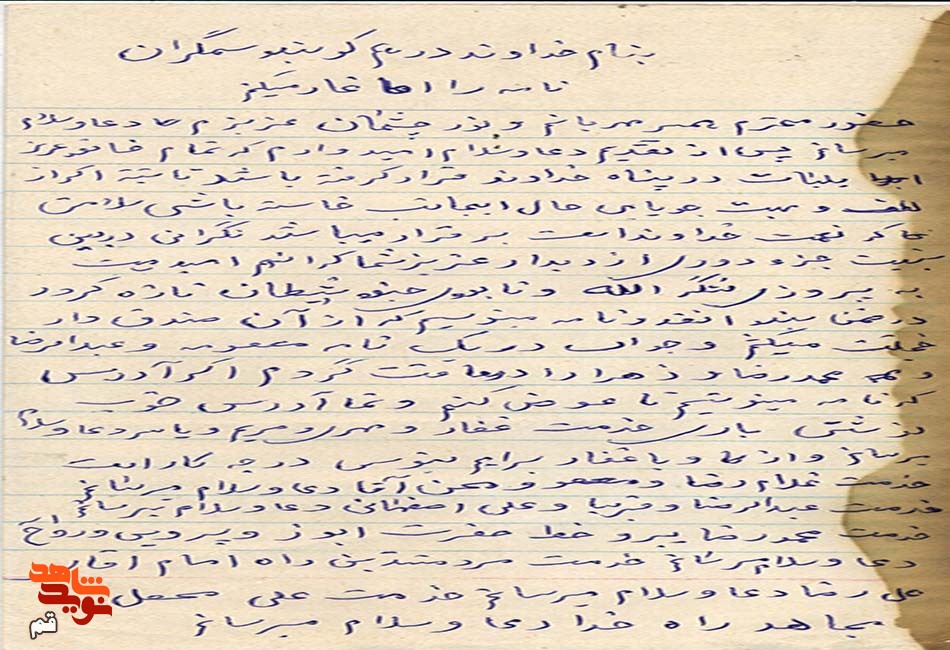 بنام خداوند درهم کوبنده ستمگران
نامه را آغاز میکنم
حضور محترم همسر مهربانم و نور چشمان عزیزم دعا و سلام
میرسانم پس از تقدیم دعا و سلام امیدوارم که تمام خانواده عزیز
از بلیات در پناه خداوند قرار گرفته باشند اگر از
لطف و محبت جویای حال اینجانب خواسته باشی سلامتی
نعمت خداوند است برقرار میباشد نگرانی در بین
نیست جزء دوری از دیدار عزیز شما که آنهم امید است
به پیروزی لشکر الله و نابودی جنود شیطان تازه گردد
در ضمن بنده آنقدر نامه مینویسم که از آن صندوق دار
خجالت میکشم و جواب در یک نامه معصومه و عبدالرضا
و محمدرضا و زهرا را دریافت کردم اگر آدرس
که نامه مینویسیم تا عوض کنم و شما آدرس خوب
نوشتی باری خدمت غفار و مهری و مریم و یاسر دعا و سلام
برسانم و از شما و با غفار برایم بنویس در چه کار است
خدمت غلامرضا و محسن آقا دعا و سلام میرسانم
خدمت عبدالرضا و ثریا و علی اصفهانی دعا و سلام میرسانم
خدمت محمدرضا پیرو خط حضرت ابوذر و پروین و رواح
دعا و سلام میرسانم خدمت راه امام آقای
علی رضا دعا و سلام میرسانم خدمت علی
مجاهد راه خدا دعا و سلام میرسانم
شاهد
نوید
قم